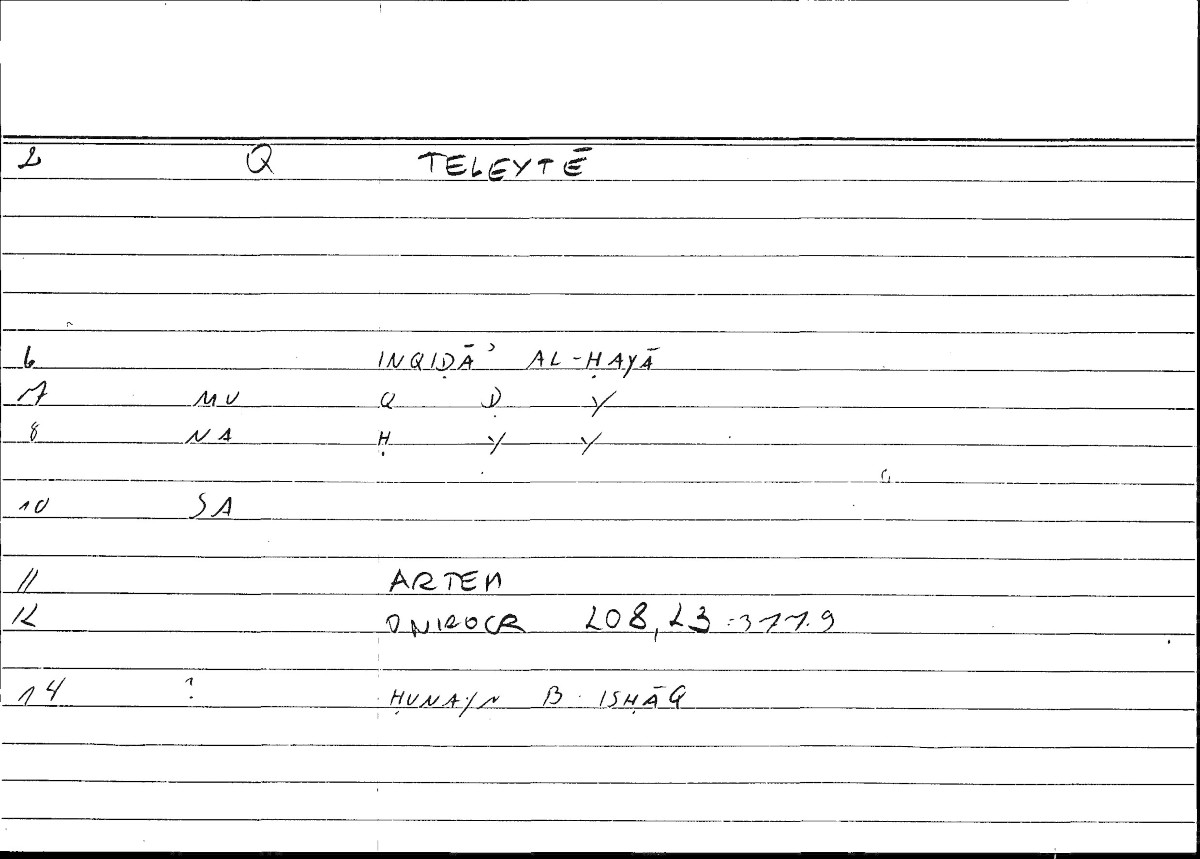 2 Q TELEYTĒ
6 INQIḌĀʾ AL-ḤAYĀ
7 MU Q Ḍ Y
8 NA Ḥ Y Y
10 SA
11 ARTEM
12 ONIROCR 208,23-377.9
14 ? ḤUNAYN B. ISḤĀQ